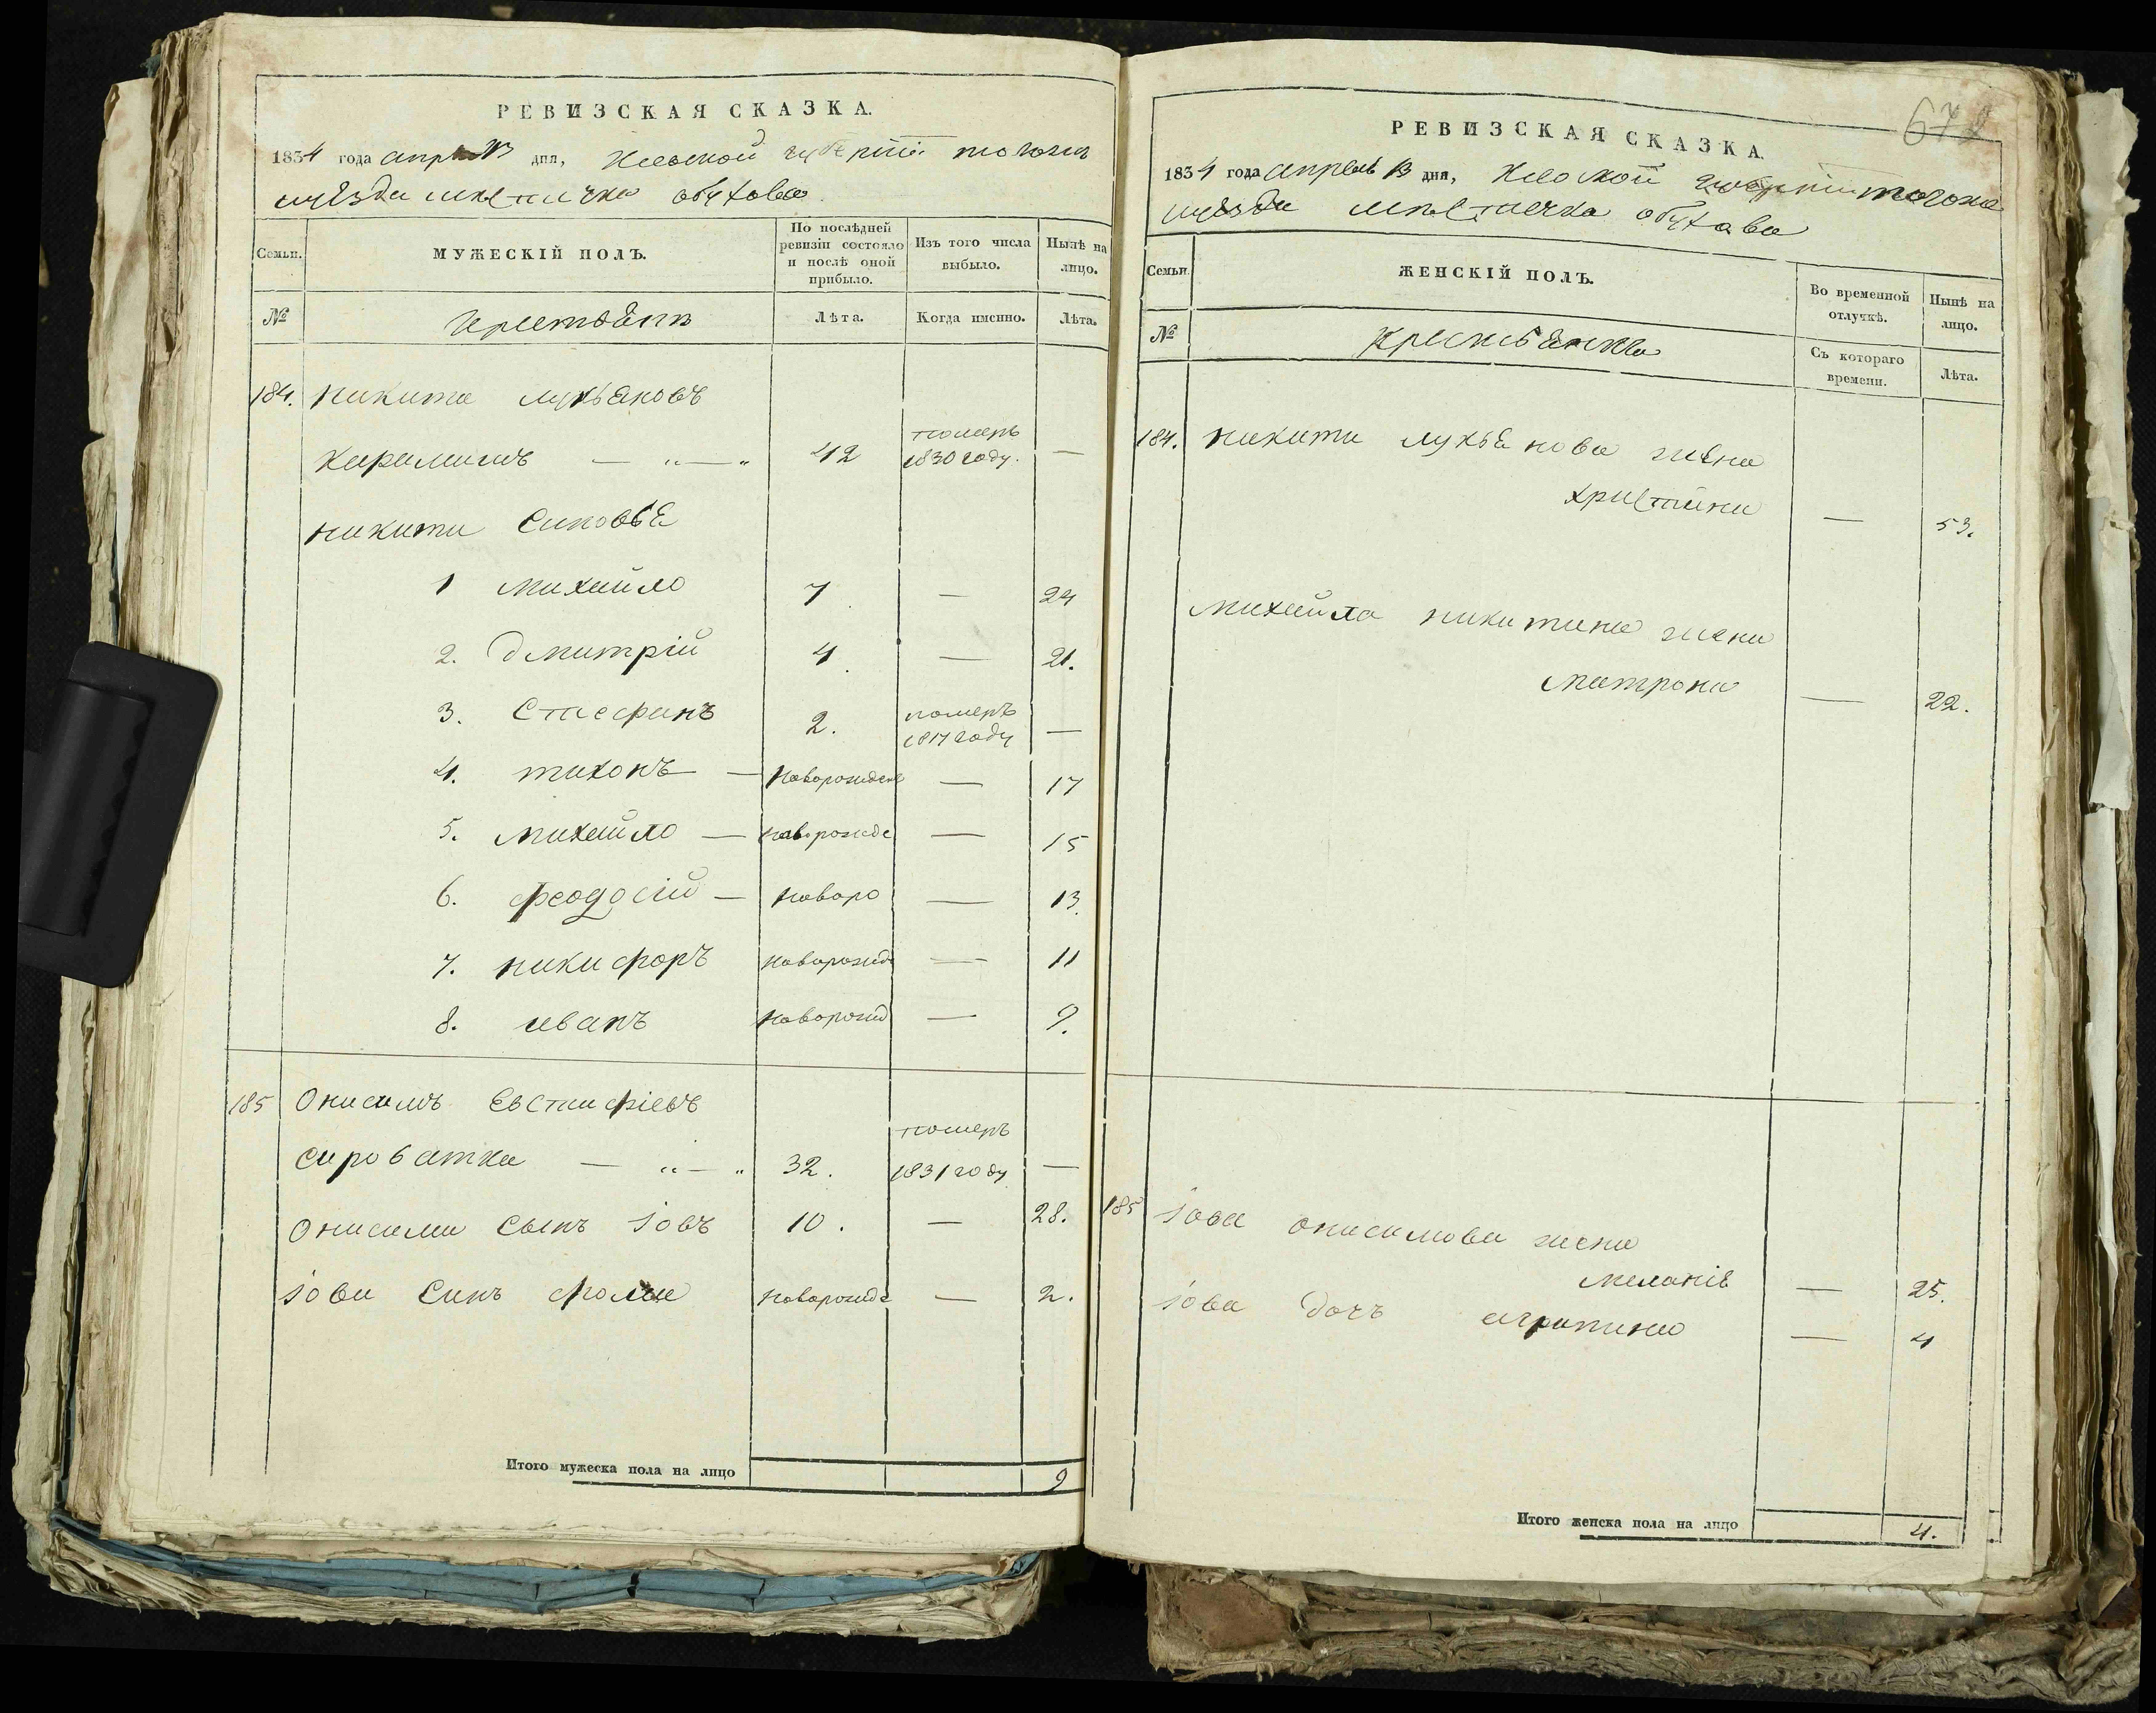 РЕВИЗСКАЯ СКАЗКА.
1834 года апреля 13 дня, Киевской губернии
уезда местечка обухова
Семьи.
МУЖЕСКІЙ ПОЛЪ.
По послѣдней ревизіи состояло и послѣ оной прибыло.
Изъ того числа выбыло.
Нынѣ на лицо.
№
Лѣта.
Когда именно.
Лѣта.
184. никита лукьяновъ
карамашъ — „ — „ 42 померъ 1830 году. —
никити синовья
1 михайло 7 — 24
2. дмитрій 4 — 21.
3. Стеефанъ 2. померъ 1817 году —
4. тихонъ — новорожден — 17
5. михайло — новорожде — 15
6. феодосій — новоро — 13.
7. никифоръ новорожд — 11
8. иванъ новорожд — 9.
185 Онисимъ Евстафіевъ
сироватка — „ — „ 32. померъ 1831 году —
Онисима сынъ іовъ 10. — 28.
іова синъ фома новорожде — 2.
Итого мужеска пола на лицо 9
672
РЕВИЗСКАЯ СКАЗКА.
1834 года апреля 13 дня, Киевской
уезда местечка обухова
Семьи.
ЖЕНСКІЙ ПОЛЪ.
Во временной отлучкѣ.
Нынѣ на лицо.
№
крестьянка
Съ котораго времени.
Лѣта.
184. никити лукьянова жена
христина — 53.
михайла никитина жена
матрона — 22.
185 іова онисимова жена
меланія — 25.
іова дочъ агрипина — 4
Итого женска пола на лицо 4.